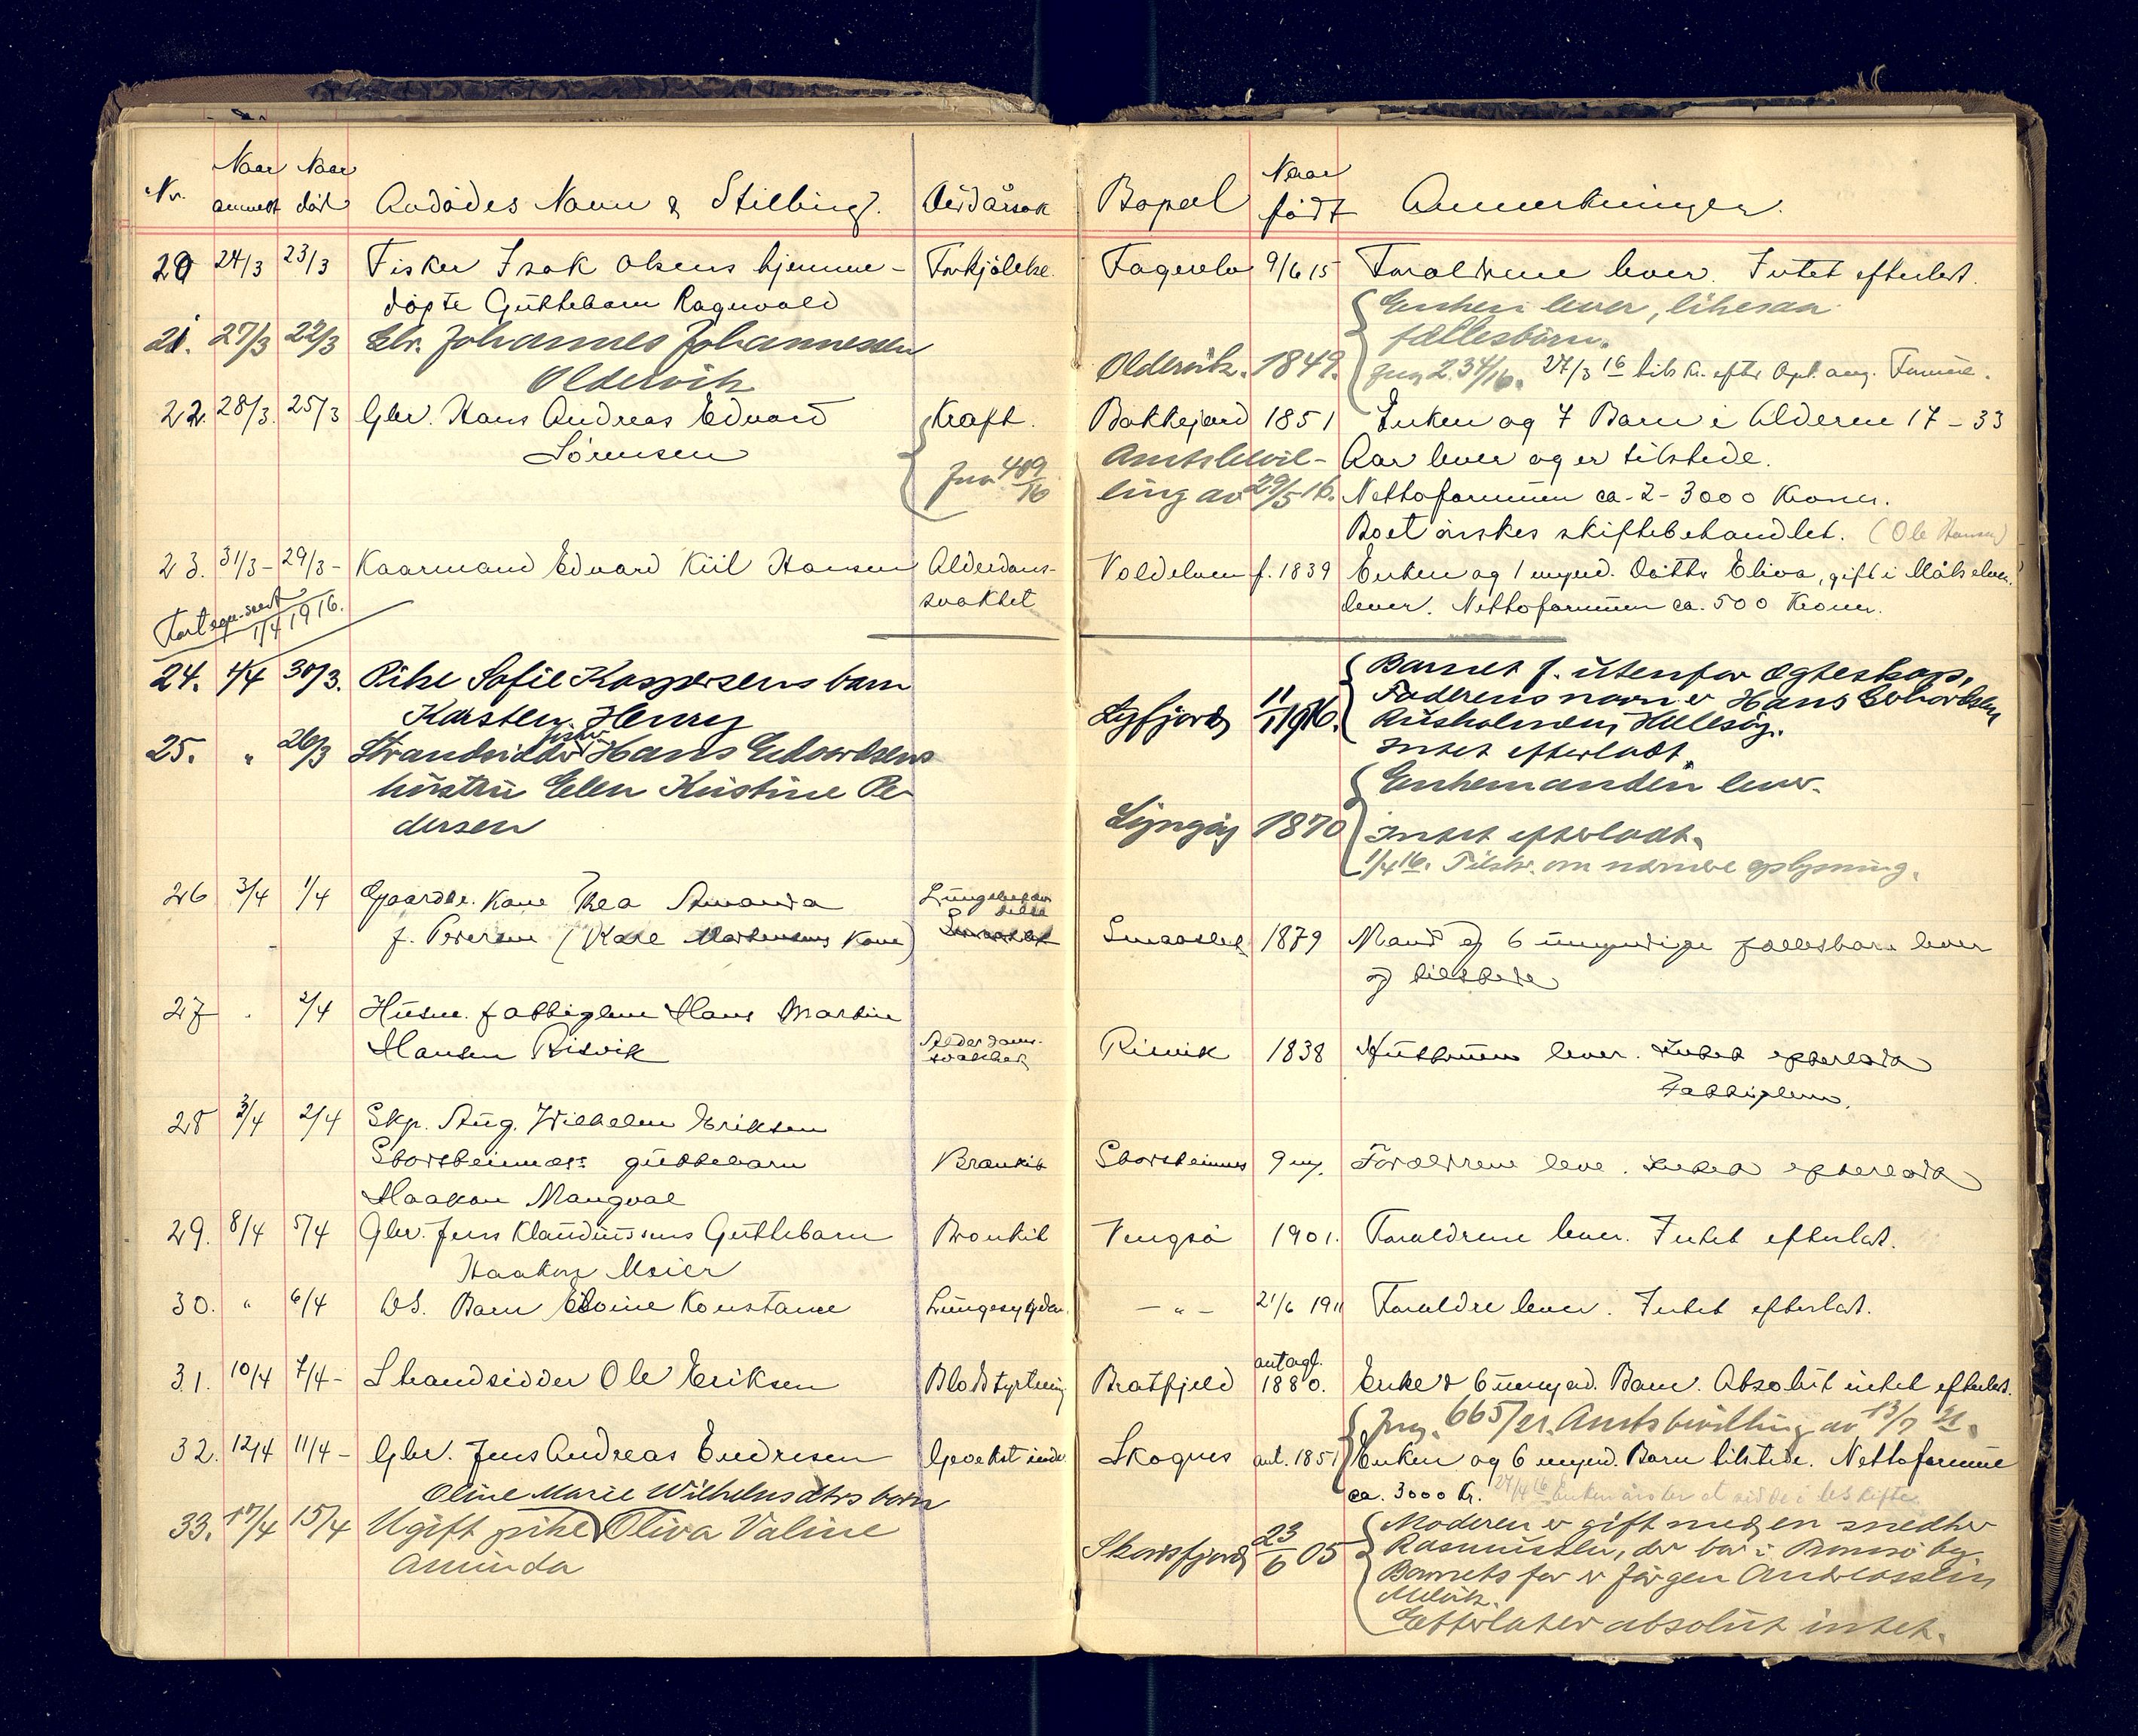 Nr. Naar anmeldt Naar död Avdödes Navn & Stilling. Dödsårsak Bopæl Naar födt Anmerkninger.
20 24/3 23/3 Fisker Isak Olsens hjemme- Forkjölelse. 9/6 15 Foraldrene lever. Intet efterlat.
döpte Guttebarn Ragnvald
Enken lever, likesaa
21. 27/3 22/3 Gbr. Johannes Johannessen fællesbörn.
Oldervik Oldervik. 1849. Jnr. 234/16. 27/3 16
22. 28/3. 25/3 Gbr. Hans Andreas Edvard Kræft. Bakkejord 1851 Enken og 7 Barn i Alderen 17-33
Sörensen Amtsbevil- Aar lever og er tilstede.
Jnr. 409/16 ling av 29/5 16. Nettoformuen ca. 2-3000 Kroner.
Boet önskes skiftebehandlet. (Ole Hansen)
23. 31/3- 29/3- Kaarmand Edvard Kiil Hansen Alderdoms- Voldelven f. 1839 Enken og 1 mynd. Datter Eliva, gift i Målselven
svakhet lever. Nettoformuen ca. 500 Kroner.
1/4 1916.
24. 1/4 30/3. Pike Sofie Kaspersens barn Barnet f. utenfor ægteskap,
Karsten Henry Lyfjord 11/1 1916. Faderens navn er Hans Edvardsen
Risholmen, Hillesöy.
25. " 26/3 Strandsidder Hans Edvardsens Intet efterladt.
hustru Elen Kristine Pe- Enkemanden lever.
dersen Lyngöy 1870 Intet efterladt.
1/4 16. Tilskr. om nærmere oplysning.
26 3/4 1/4 Gaardbr. Kone Thea Amanda
f. Pedersen (Karl Mortensens Kone) Smaaslet 1879 Mand og 6 umyndige fællesbarn lever
og tilstede
27 2/4 Husm. fattiglem Hans Martin
Hansen Risvik Alderdoms- svakhet Risvik 1838 Hustruen lever. Intet efterladt
Fattiglem.
28 3/4 2/4 Skp. Aug. Wilhelm Eriksen
Storsteinnes guttebarn Bronkit Storsteinnes 9 m. Forældrene leve. Intet efterladt
Haakon Mangval
29. 8/4 5/4 Gbr. Jens Klaudiussens Guttebarn Bronkit Vengsö 1901. Foraldrene lever. Intet efterlat.
Haakon Meier
30. " 6/4 Ds. Barn Edvine Konstance Lungesygdom. - " - 21/6 1911 Foraldre lever. Intet efterlat.
31. 10/4 7/4- Strandsidder Ole Eriksen Blodstyrtning Bratfjeld antagl. 1880. Enke & 6 umynd. Barn. Absolut intet efterlat.
Jnr. 665/21. Amtsbevilling av 13/7 21.
32. 12/4 11/4- Gbr. Jens Andreas Endresen Skognes ant. 1851 Enken og 6 mynd. Barn tilstede. Nettoformue
ca. 3000 Kr. 27/4 16 Enken önsker at sidde i uskifte.
Oline Marie Wilhelmsdtrs barn
33. 17/4 15/4 Ugift pike Oliva Valine Skarsfjord 23/6 05 Moderen er gift med en snedker
Aminda Rasmussen, der bor i Tromsö by.
Barnets far er Jörgen Andreassen
Mikvik.
Efterlater absolut intet.